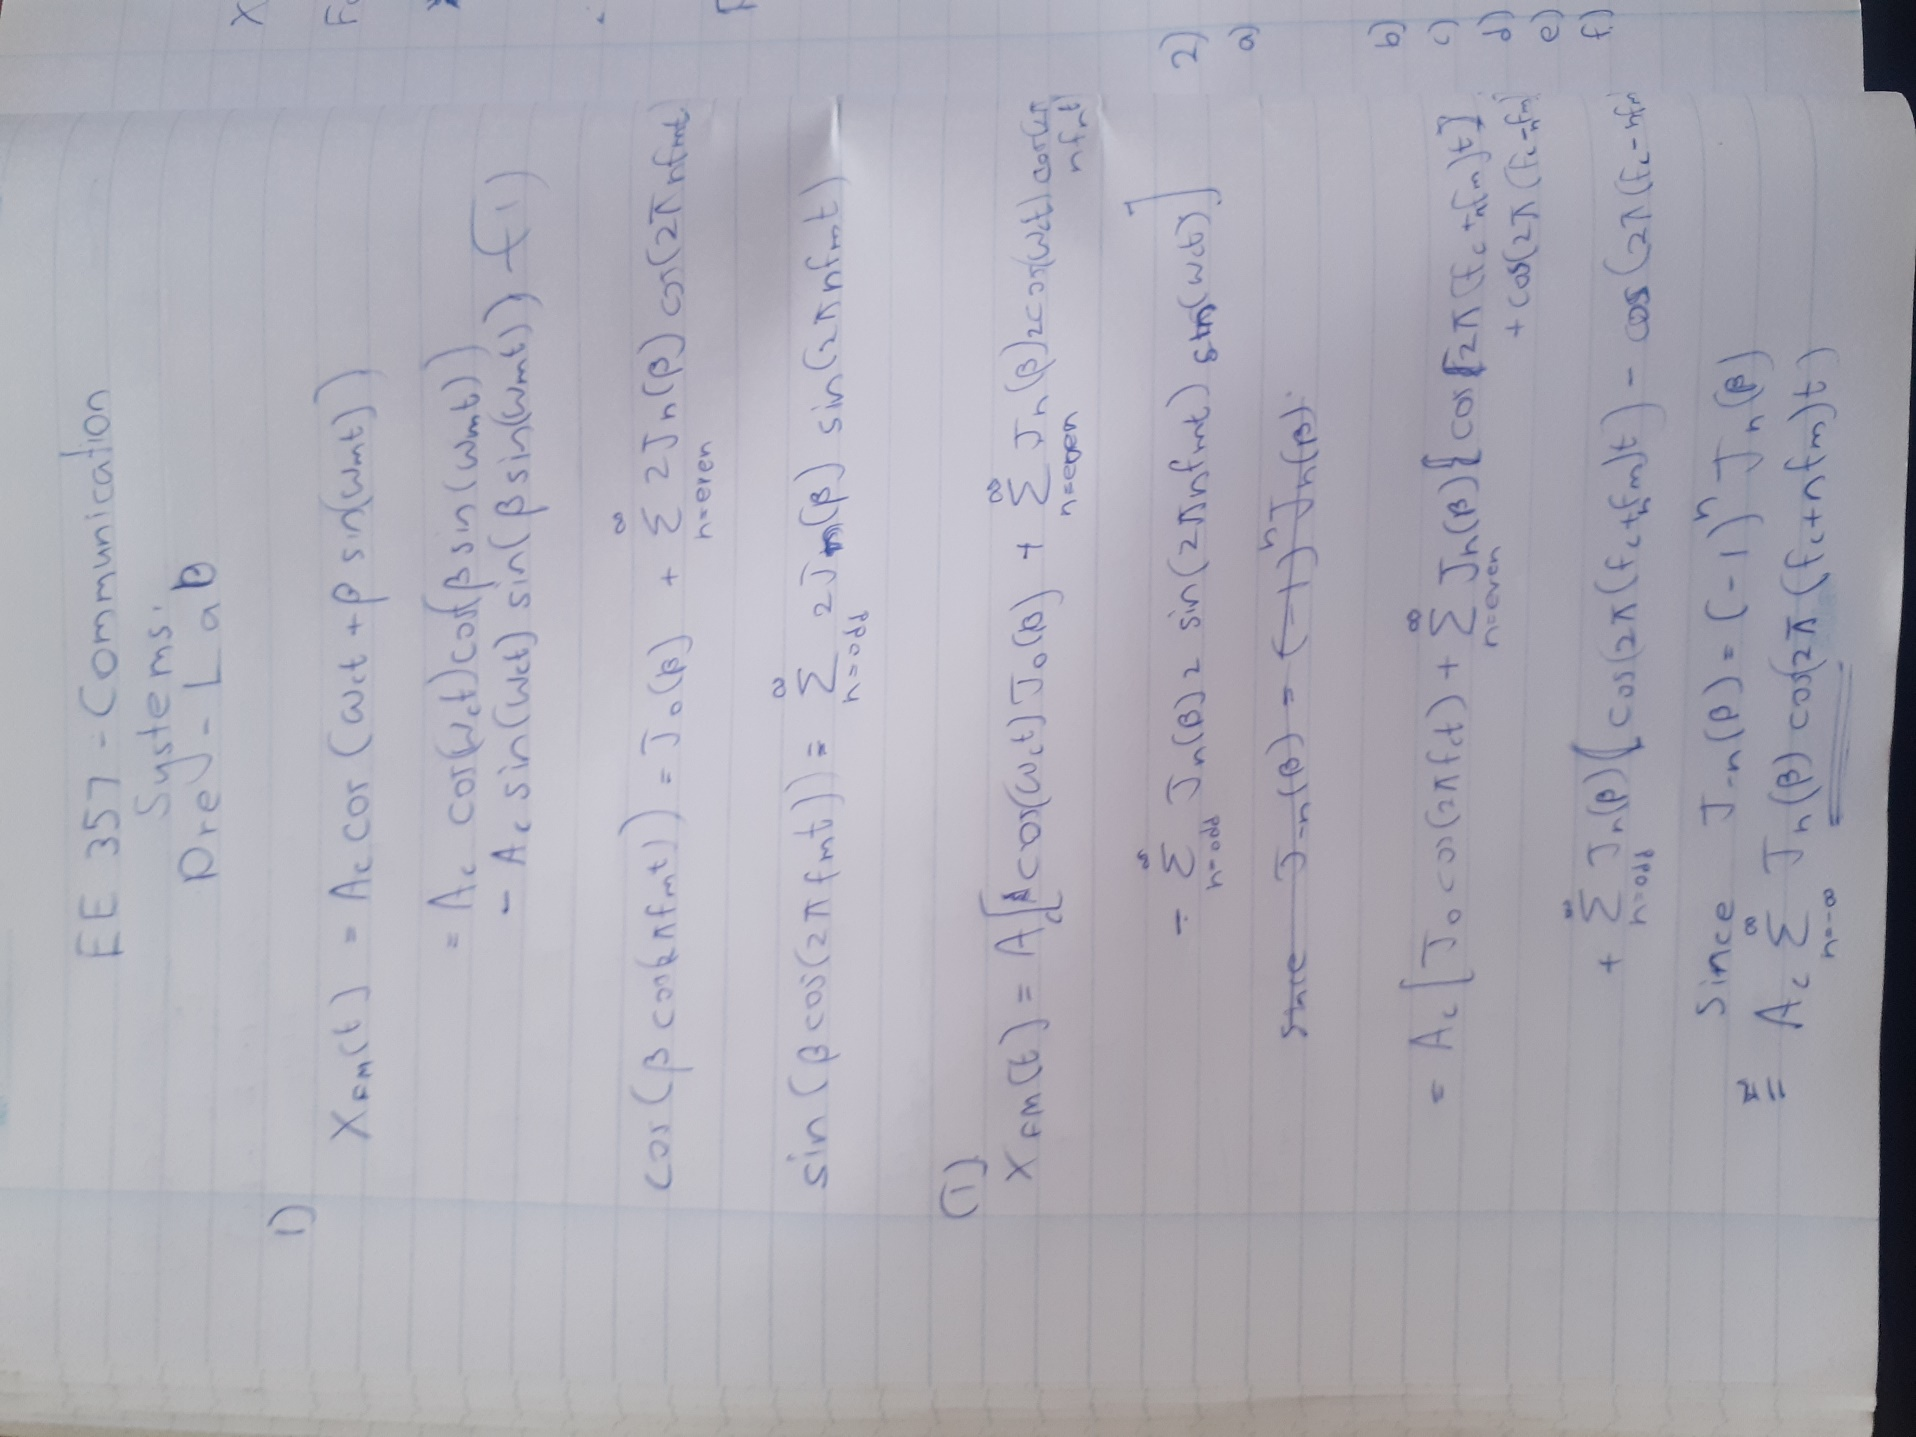 EE 357 - Communication
Systems.
Pre - Lab
1)
X_FM(t) = Ac cos(ωct + β sin(ωmt))
= Ac cos(ωct) cos(β sin(ωmt))
- Ac sin(ωct) sin(β sin(ωmt)) - (1)
cos(β cos(2πfmt)) = J₀(β) + Σ^∞_{n=even} 2Jn(β) cos(2πnfmt)
sin(β cos(2πfmt)) = Σ^∞_{n=odd} 2Jn(β) sin(2πnfmt)
(1)
X_FM(t) = Ac[cos(ωct) J₀(β) + Σ^∞_{n=even} Jn(β) 2 cos(ωct) cos(2π
nfmt)
- Σ^∞_{n=odd} Jn(β) 2 sin(2πnfmt) sin(ωct)]
since J-n(β) = (-1)^n Jn(β).
= Ac[J₀ cos(2πfct) + Σ^∞_{n=even} Jn(β){cos[2π(fc+nfm)t]
+ cos(2π(fc-nfm)
+ Σ^∞_{n=odd} Jn(β)(cos(2π(fc+nfm)t) - cos(2π(fc-nfm
Since J-n(β) = (-1)^n Jn(β)
= Ac Σ^∞_{n=-∞} Jn(β) cos(2π(fc+nfm)t)
X
F
2)
a)
b)
c)
d)
e)
f)